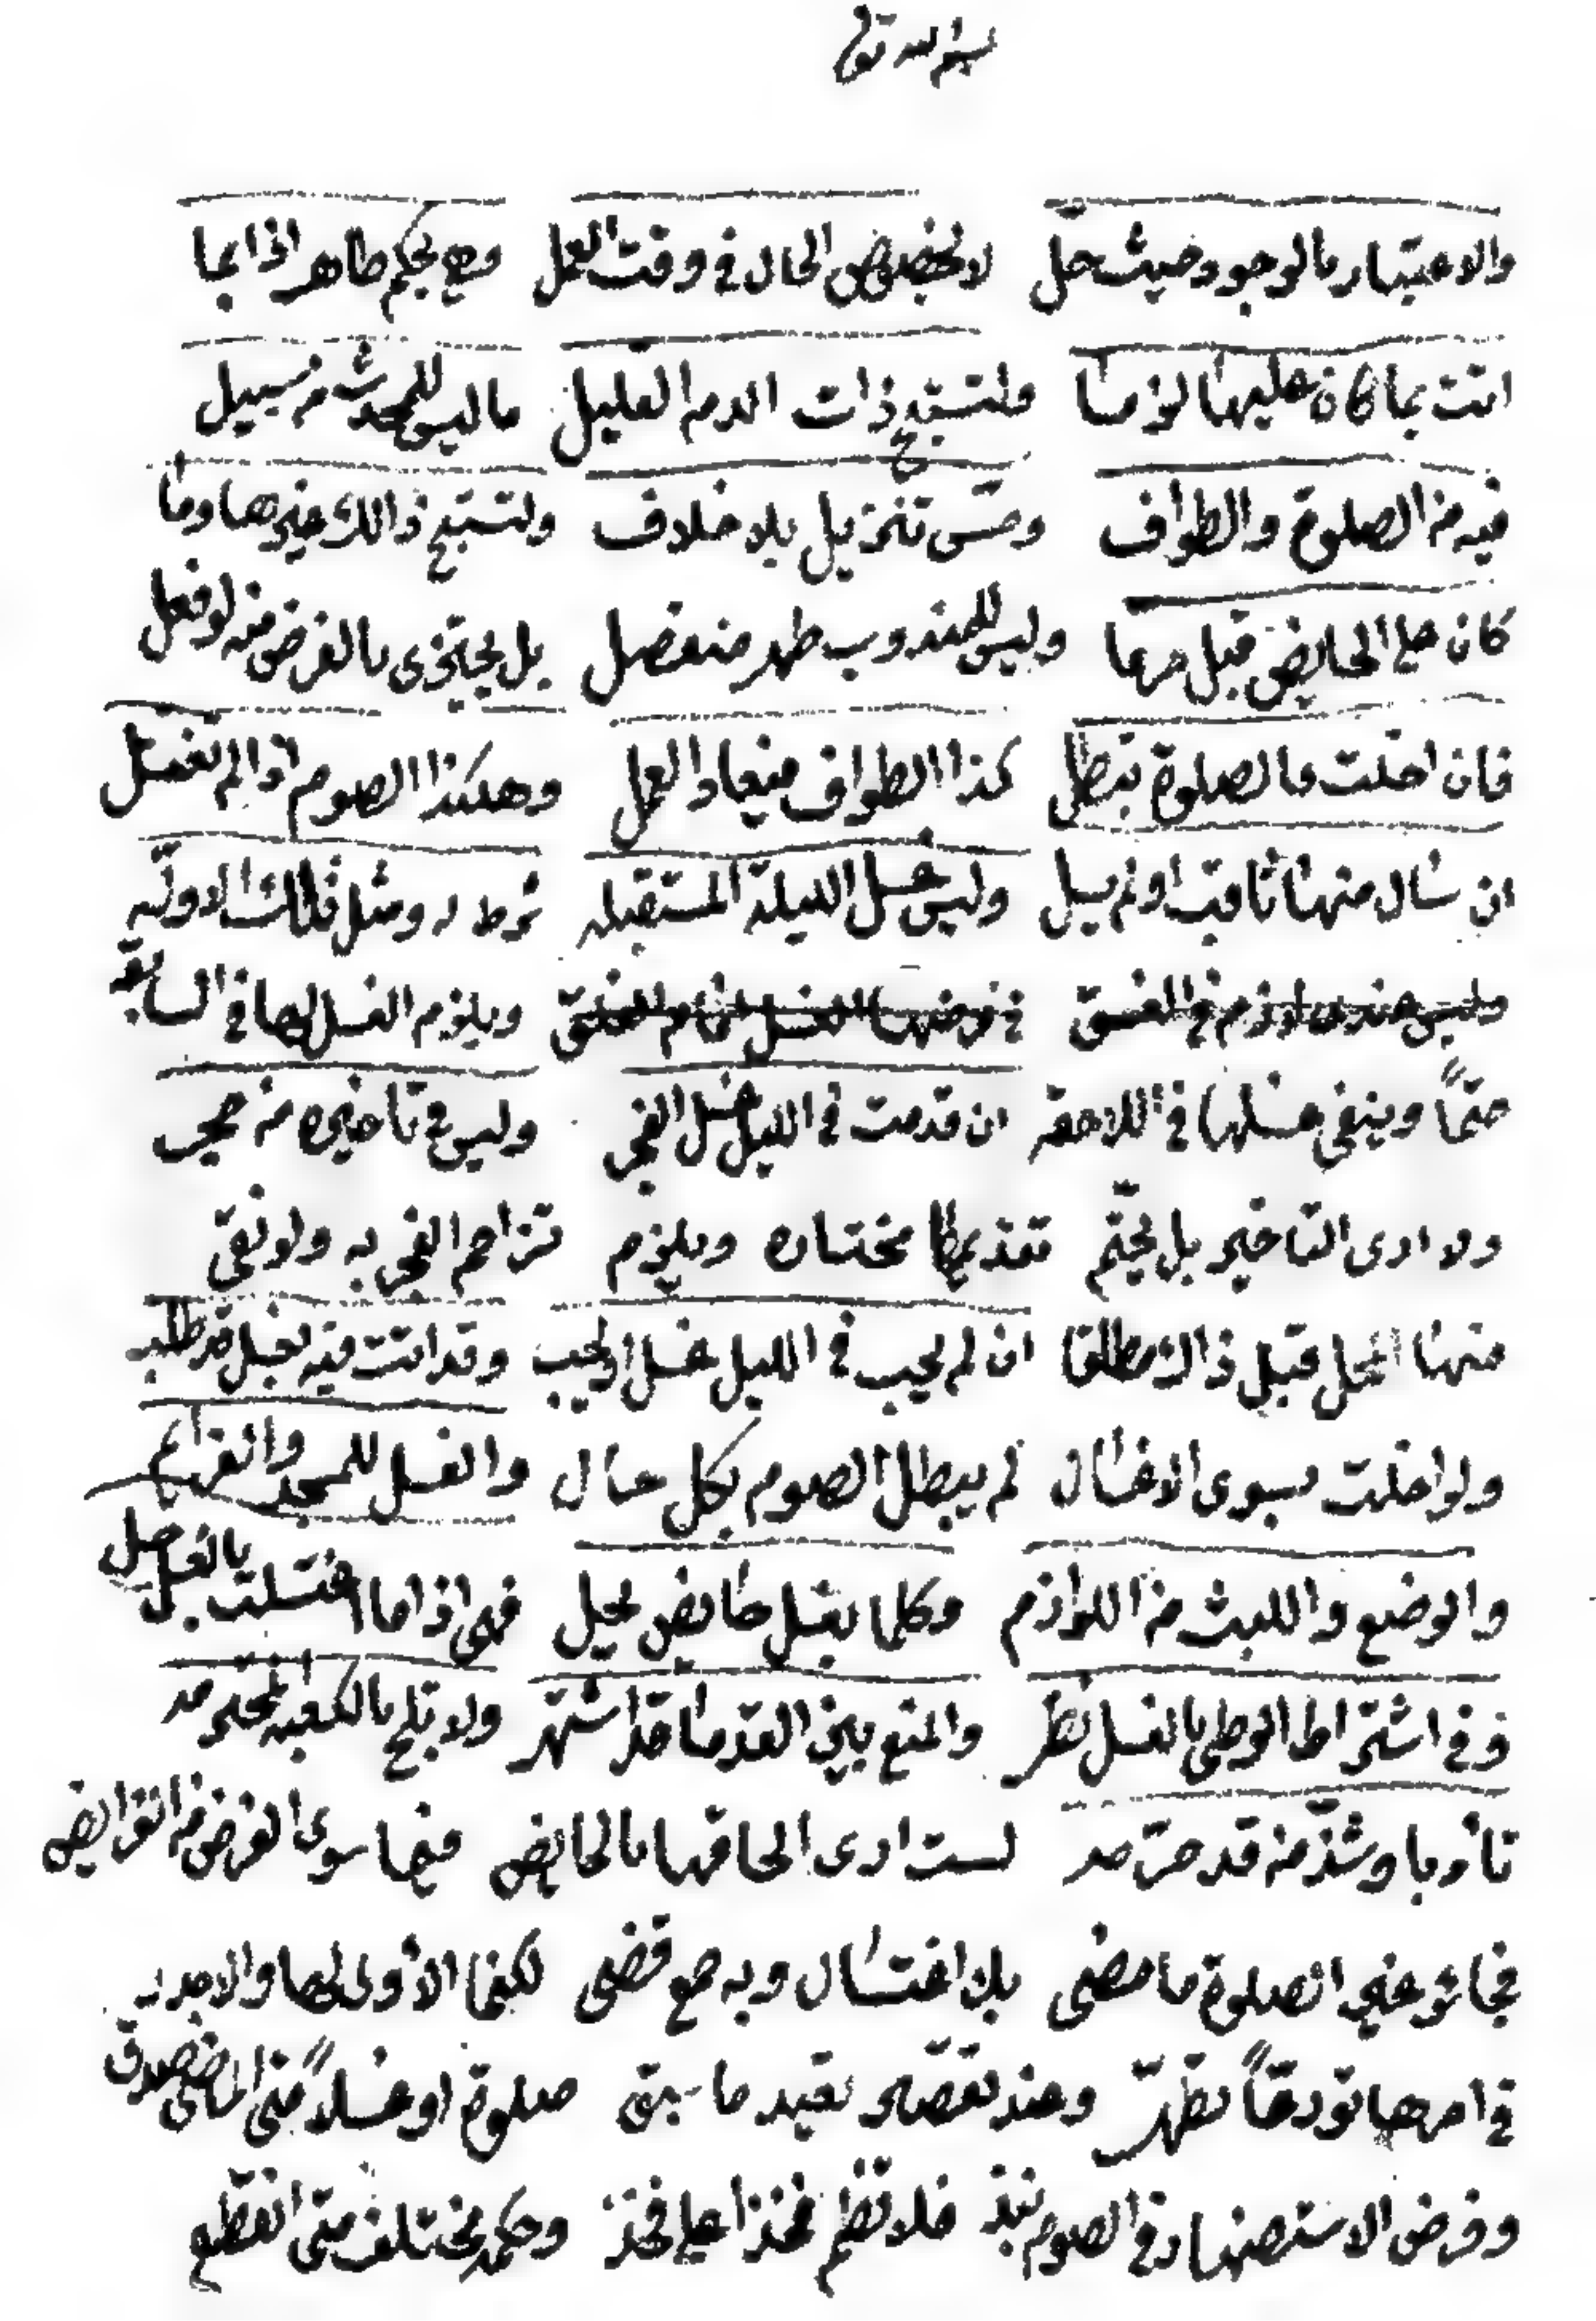 بسم الله تعالى
والاعتبار بالوجود حيث حل لا بخصوص الحال في وقت العمل وهي بحكم طاهر اذا بما
اتت بما كان عليها لزما ولتستبح ذات الدم القليل ما ليس للمحدث من سبيل
فيه من الصلوة والطواف ومس تنزيل بلا خلاف ولتستبح ذالك غيرها وما
كان على الحايض قبل حرما وليس للمندوب طهر منفصل بل يجتزى بالفرض منه لو فعل
فان اخلت فالصلوة تبطل كذا الطواف فيعاد العمل وهكذا الصوم اذا لم تغتسل
ان سال منها ثاقبا او لم يسل وليس غسل الليلة المستقبله شرط له ومثل ذلك الاوليه
وليس عندى لازم في الغسق في فرضها الغسل امام الفلق ويلزم الغسل لها في السابقه
حتماً وينفى غسلها في اللاحقه ان قدمت في الليل غسل الفجر وليس في تاخيره من حجر
ولا ارى التاخير بل يحتم تقديمها مختاره ويلزم تزاحم الفجر به ولو بقى
منها المحل قبل ذاك مطلقا ان لم يجب في الليل غسل او يجب وقد اتت فيه بغسل قد طلب
ولو اخلت بسوى الاغسال لم يبطل الصوم بكل حال والغسل للمسجد والعزايم
والوضع واللبث من اللوازم وكلما بغسل حايض يحل فهى اذا ما اغتسلت بالغسل حل
وفي اشتراط الوطى بالغسل نظر والمنع بين القدما قد اشتهر ولا تلج بالكعبة المحترمه
تأدبا وشذ من قد حرمه لست ارى الحاقها بالحايض فيما سوى الفرض من الفرايض
فجائز غير الصلوة ما مضى بلا اغتسال وبه صح قضى لكنما الأولى لها والاجدر
في امرها تودعاً تطهر وعند نقصه تعيد ما سبق صلوة او غسلاً متى الماضى صدق
وفرض الاستظهار في الصوم نبذ فلا تضم فخذا على فخذ وحكمه مختلف متى انقطع